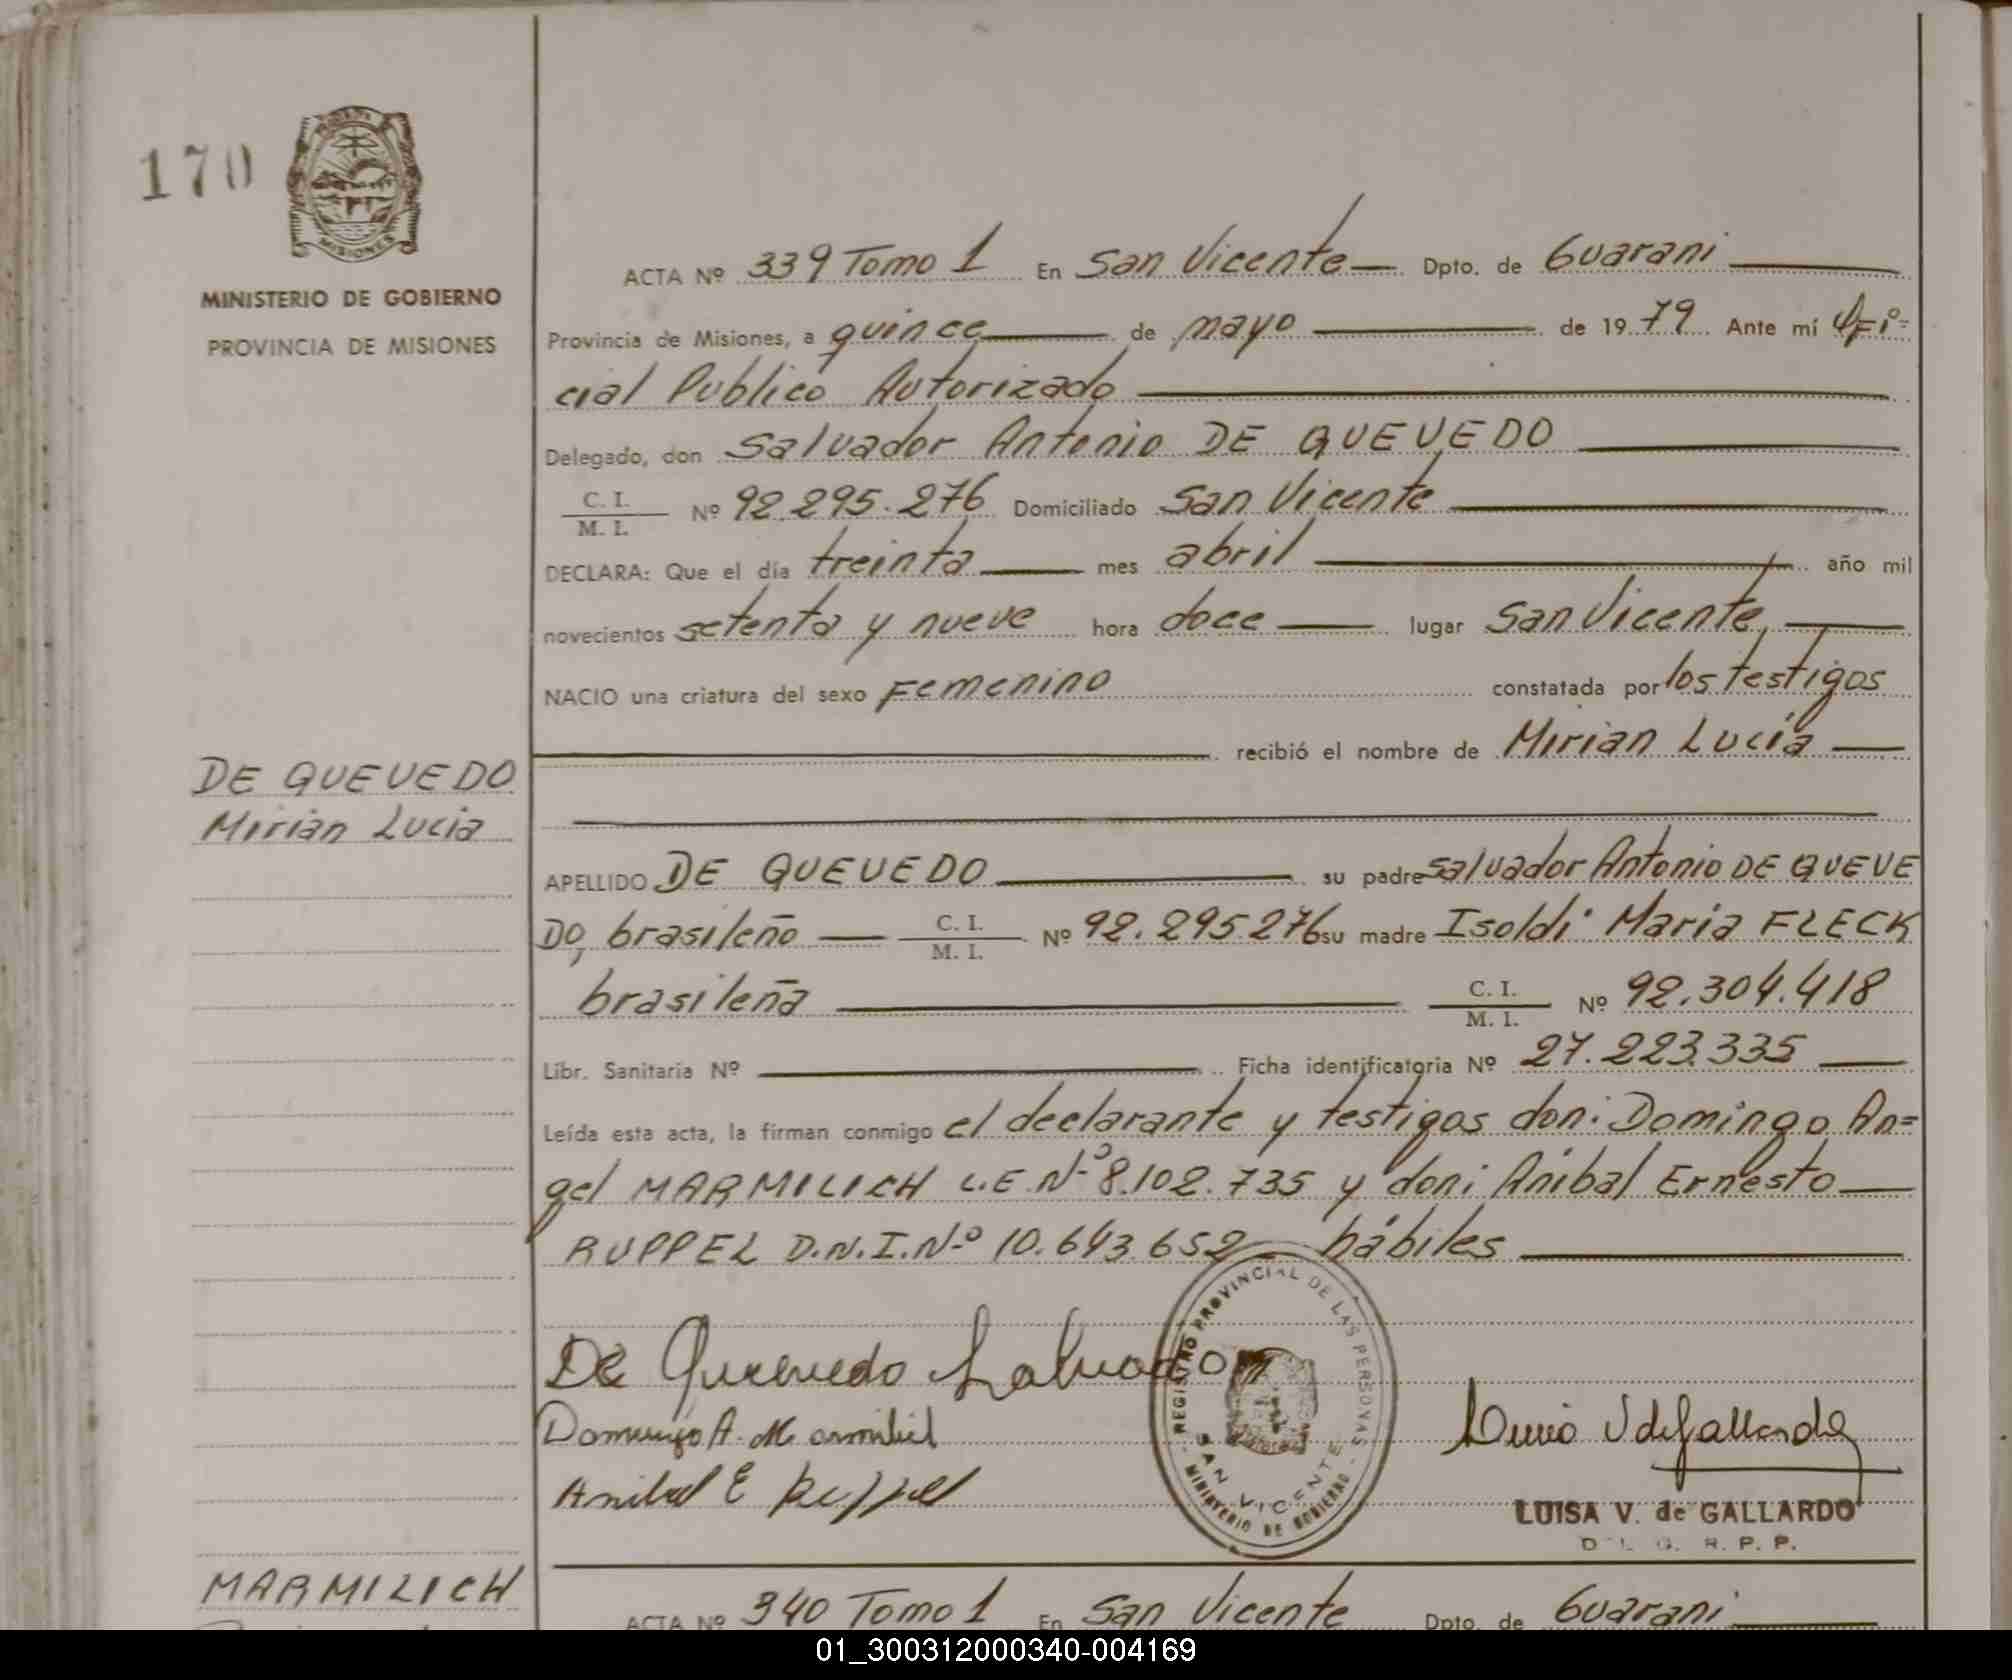 170
MISIONES
MINISTERIO DE GOBIERNO
PROVINCIA DE MISIONES
ACTA Nº 339 Tomo 1 En San Vicente Dpto. de Guarani
Provincia de Misiones, a quince de mayo de 1979 Ante mí Ofi=
cial Publico Autorizado
Delegado, don Salvador Antonio DE QUEVEDO
C. I.
M. I. Nº 92.295.276 Domiciliado San Vicente
DECLARA: Que el día treinta mes abril año mil
novecientos setenta y nueve hora doce lugar San Vicente,
NACIO una criatura del sexo Femenino constatada por los testigos
recibió el nombre de Mirian Lucía
DE QUEVEDO
Mirian Lucia
APELLIDO DE QUEVEDO su padre Salvador Antonio DE QUEVE
DO, brasileño C. I.
M. I. Nº 92.295.276 su madre Isoldi Maria FLECK
brasileña C. I.
M. I. Nº 92.304.418
Libr. Sanitaria Nº Ficha identificatoria Nº 27.223.335
Leída esta acta, la firman conmigo el declarante y testigos don: Domingo An=
gel MARMILICH L.E Nº 8.102.735 y don: Aníbal Ernesto
RUPPEL D.N.I.Nº 10.643.652 hábiles
De Quevedo Salvador
Domingo A. Marmilich
Anibal E Ruppel
REGISTRO PROVINCIAL DE LAS PERSONAS
SAN VICENTE
MINISTERIO DE GOBIERNO
LUISA V. de GALLARDO
R. P. P.
MARMILICH
ACTA Nº 340 Tomo 1 En San Vicente Dpto. de Guarani
01_300312000340-004169